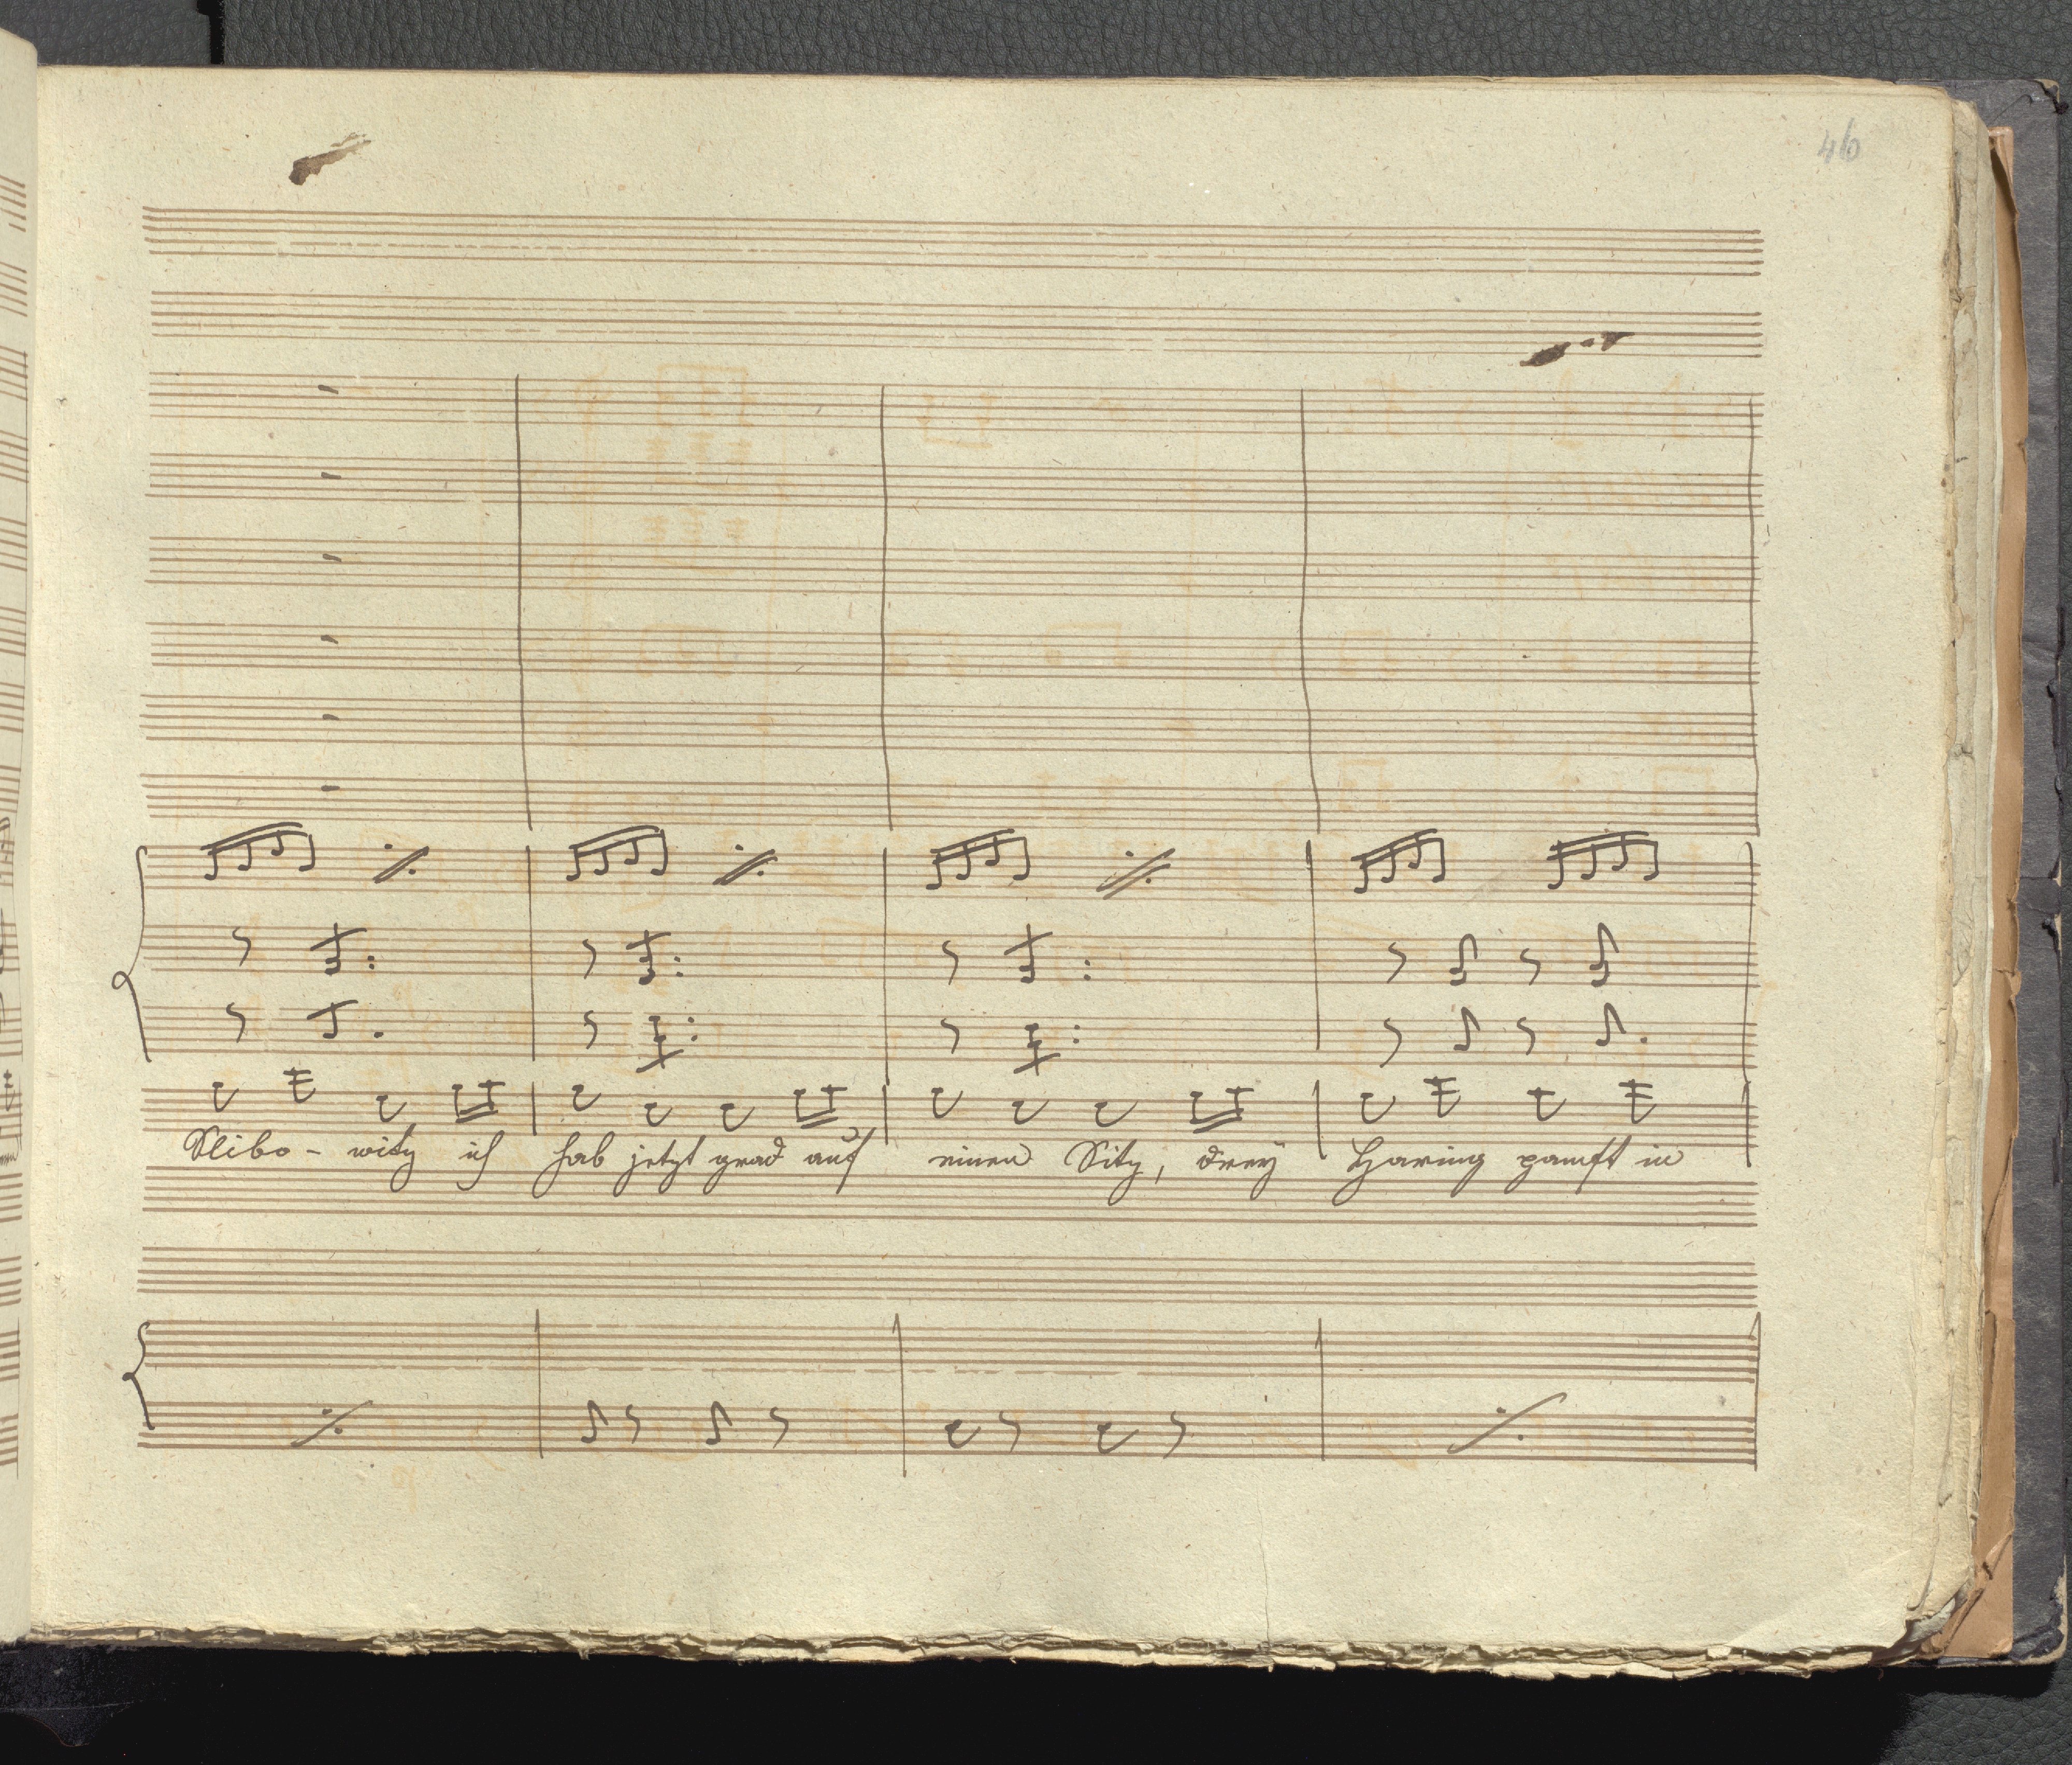 46
Slibo - witz ich hab jetzt grad auf einen Sitz, drey Haring pampft in